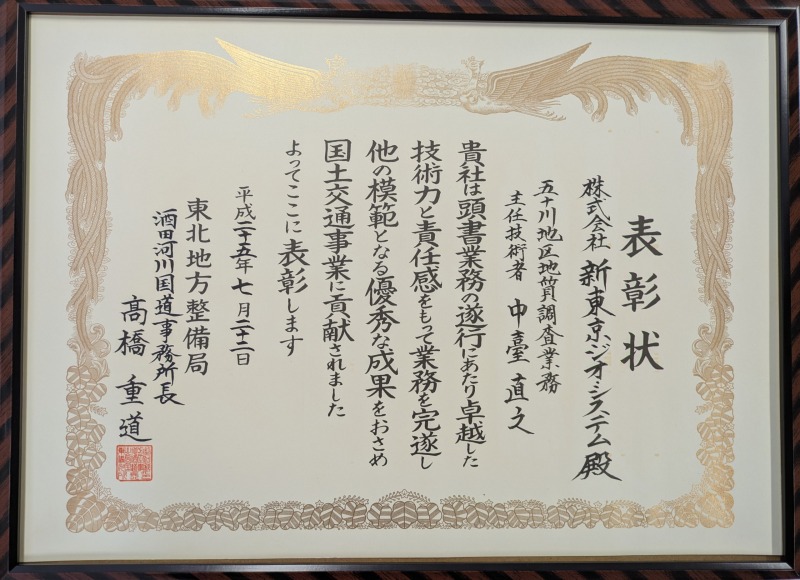 表彰状
株式会社 新東京ジオ・システム殿
五十川地区地質調査業務
主任技術者 中臺直之
貴社は頭書業務の遂行にあたり卓越した
技術力と責任感をもって業務を完遂し
他の模範となる優秀な成果をおさめ
国土交通事業に貢献されました
よってここに表彰します
平成二十五年七月二十二日
東北地方整備局
酒田河川国道事務所長
髙橋重道